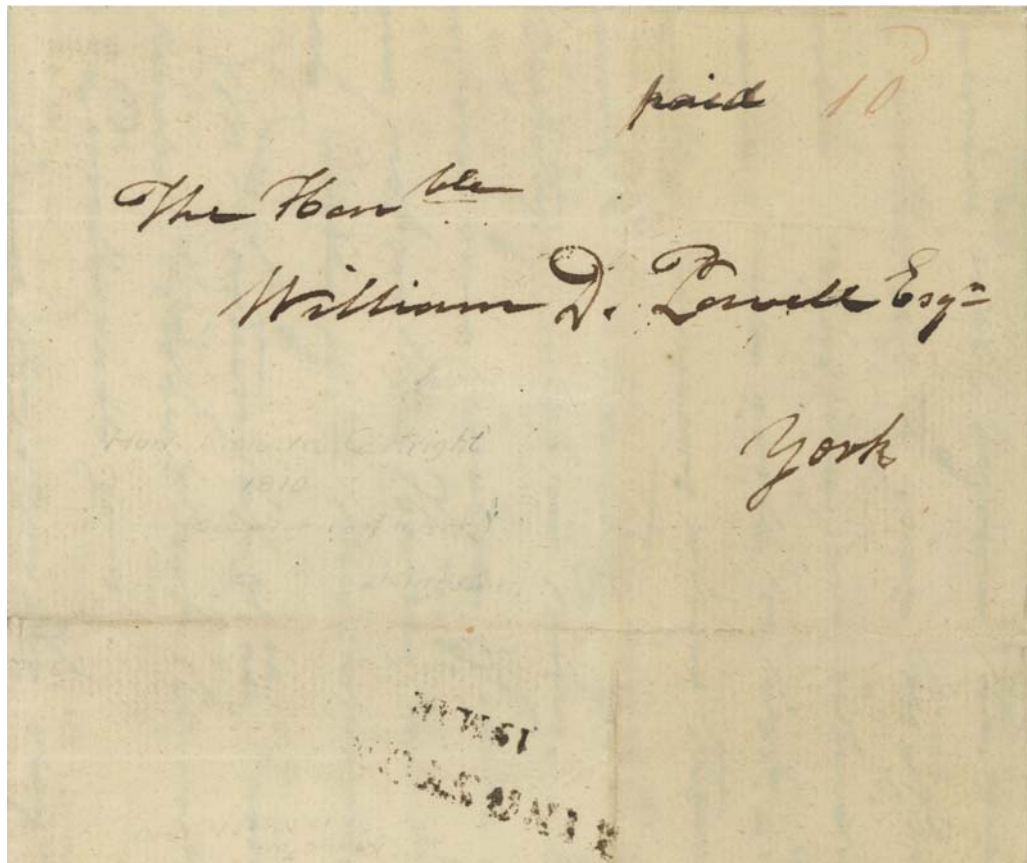 paid 10
The Hon ble
William D. Powell Esqr
York
1810
KINGSTON